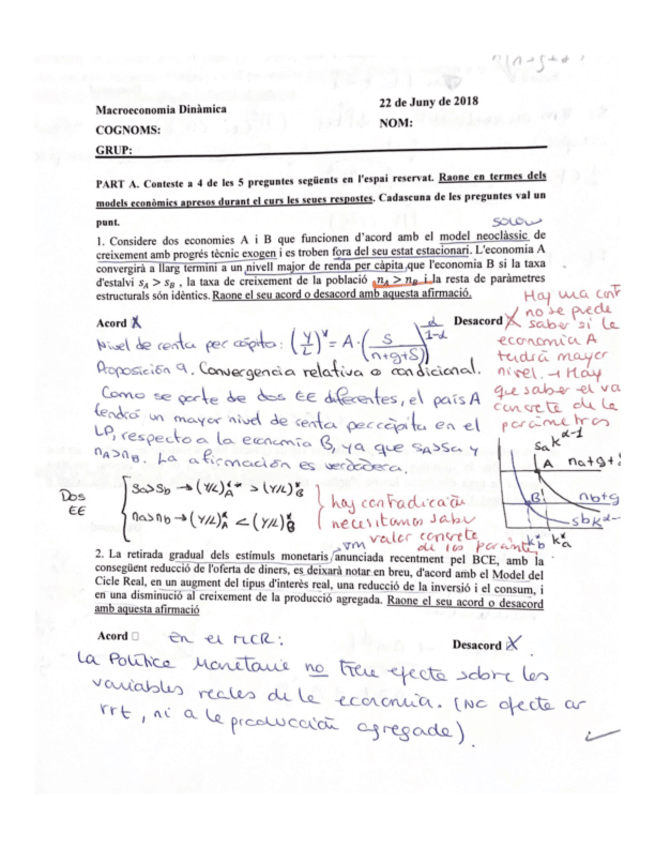 Macroeconomia Dinàmica
22 de Juny de 2018
COGNOMS:
NOM:
GRUP:
PART A. Conteste a 4 de les 5 preguntes següents en l'espai reservat. Raone en termes dels
models econòmics apresos durant el curs les seues respostes. Cadascuna de les preguntes val un
punt.
SOLOW
1. Considere dos economies A i B que funcionen d'acord amb el model neoclàssic de
creixement amb progrés tècnic exogen i es troben fora del seu estat estacionari. L'economia A
convergirà a llarg termini a un nivell major de renda per càpita que l'economia B si la taxa
d'estalvi sA > sB , la taxa de creixement de la població nA > nB i la resta de paràmetres
estructurals són idèntics. Raone el seu acord o desacord amb aquesta afirmació.
Acord X
Desacord X
Hay una cont
no se puede
saber si la
economía A
tendrá mayor
nivel. → Hay
que saber el va
concreto de la
parámetros
Nivel de renta per cápita: (Y/L)* = A · (S/(n+g+δ))^α/1-α
Proposición 9. Convergencia relativa o condicional.
Como se parte de dos EE diferentes, el país A
tendrá un mayor nivel de renta per cápita en el
LP, respecto a la economía B, ya que SA>SB y
nA>nB. La afirmación es verdadera.
Dos
EE
Sa>Sb → (Y/L)*A > (Y/L)*B
na>nb → (Y/L)*A < (Y/L)*B
hay contradicción
necesitamos saber
valor concreto
de los parámet
sa k^α-1
A
na+g+
B
nb+g
sbk^α-
k*b k*a
2. La retirada gradual dels estímuls monetaris anunciada recentment pel BCE, amb la
consegüent reducció de l'oferta de diners, es deixarà notar en breu, d'acord amb el Model del
Cicle Real, en un augment del tipus d'interès real, una reducció de la inversió i el consum, i
en una disminució al creixement de la producció agregada. Raone el seu acord o desacord
amb aquesta afirmació
Acord
En el MCR:
Desacord X
La Política Monetaria no tiene efecto sobre las
variables reales de la economía. (No afecta a
rrt, ni a la producción agregada).